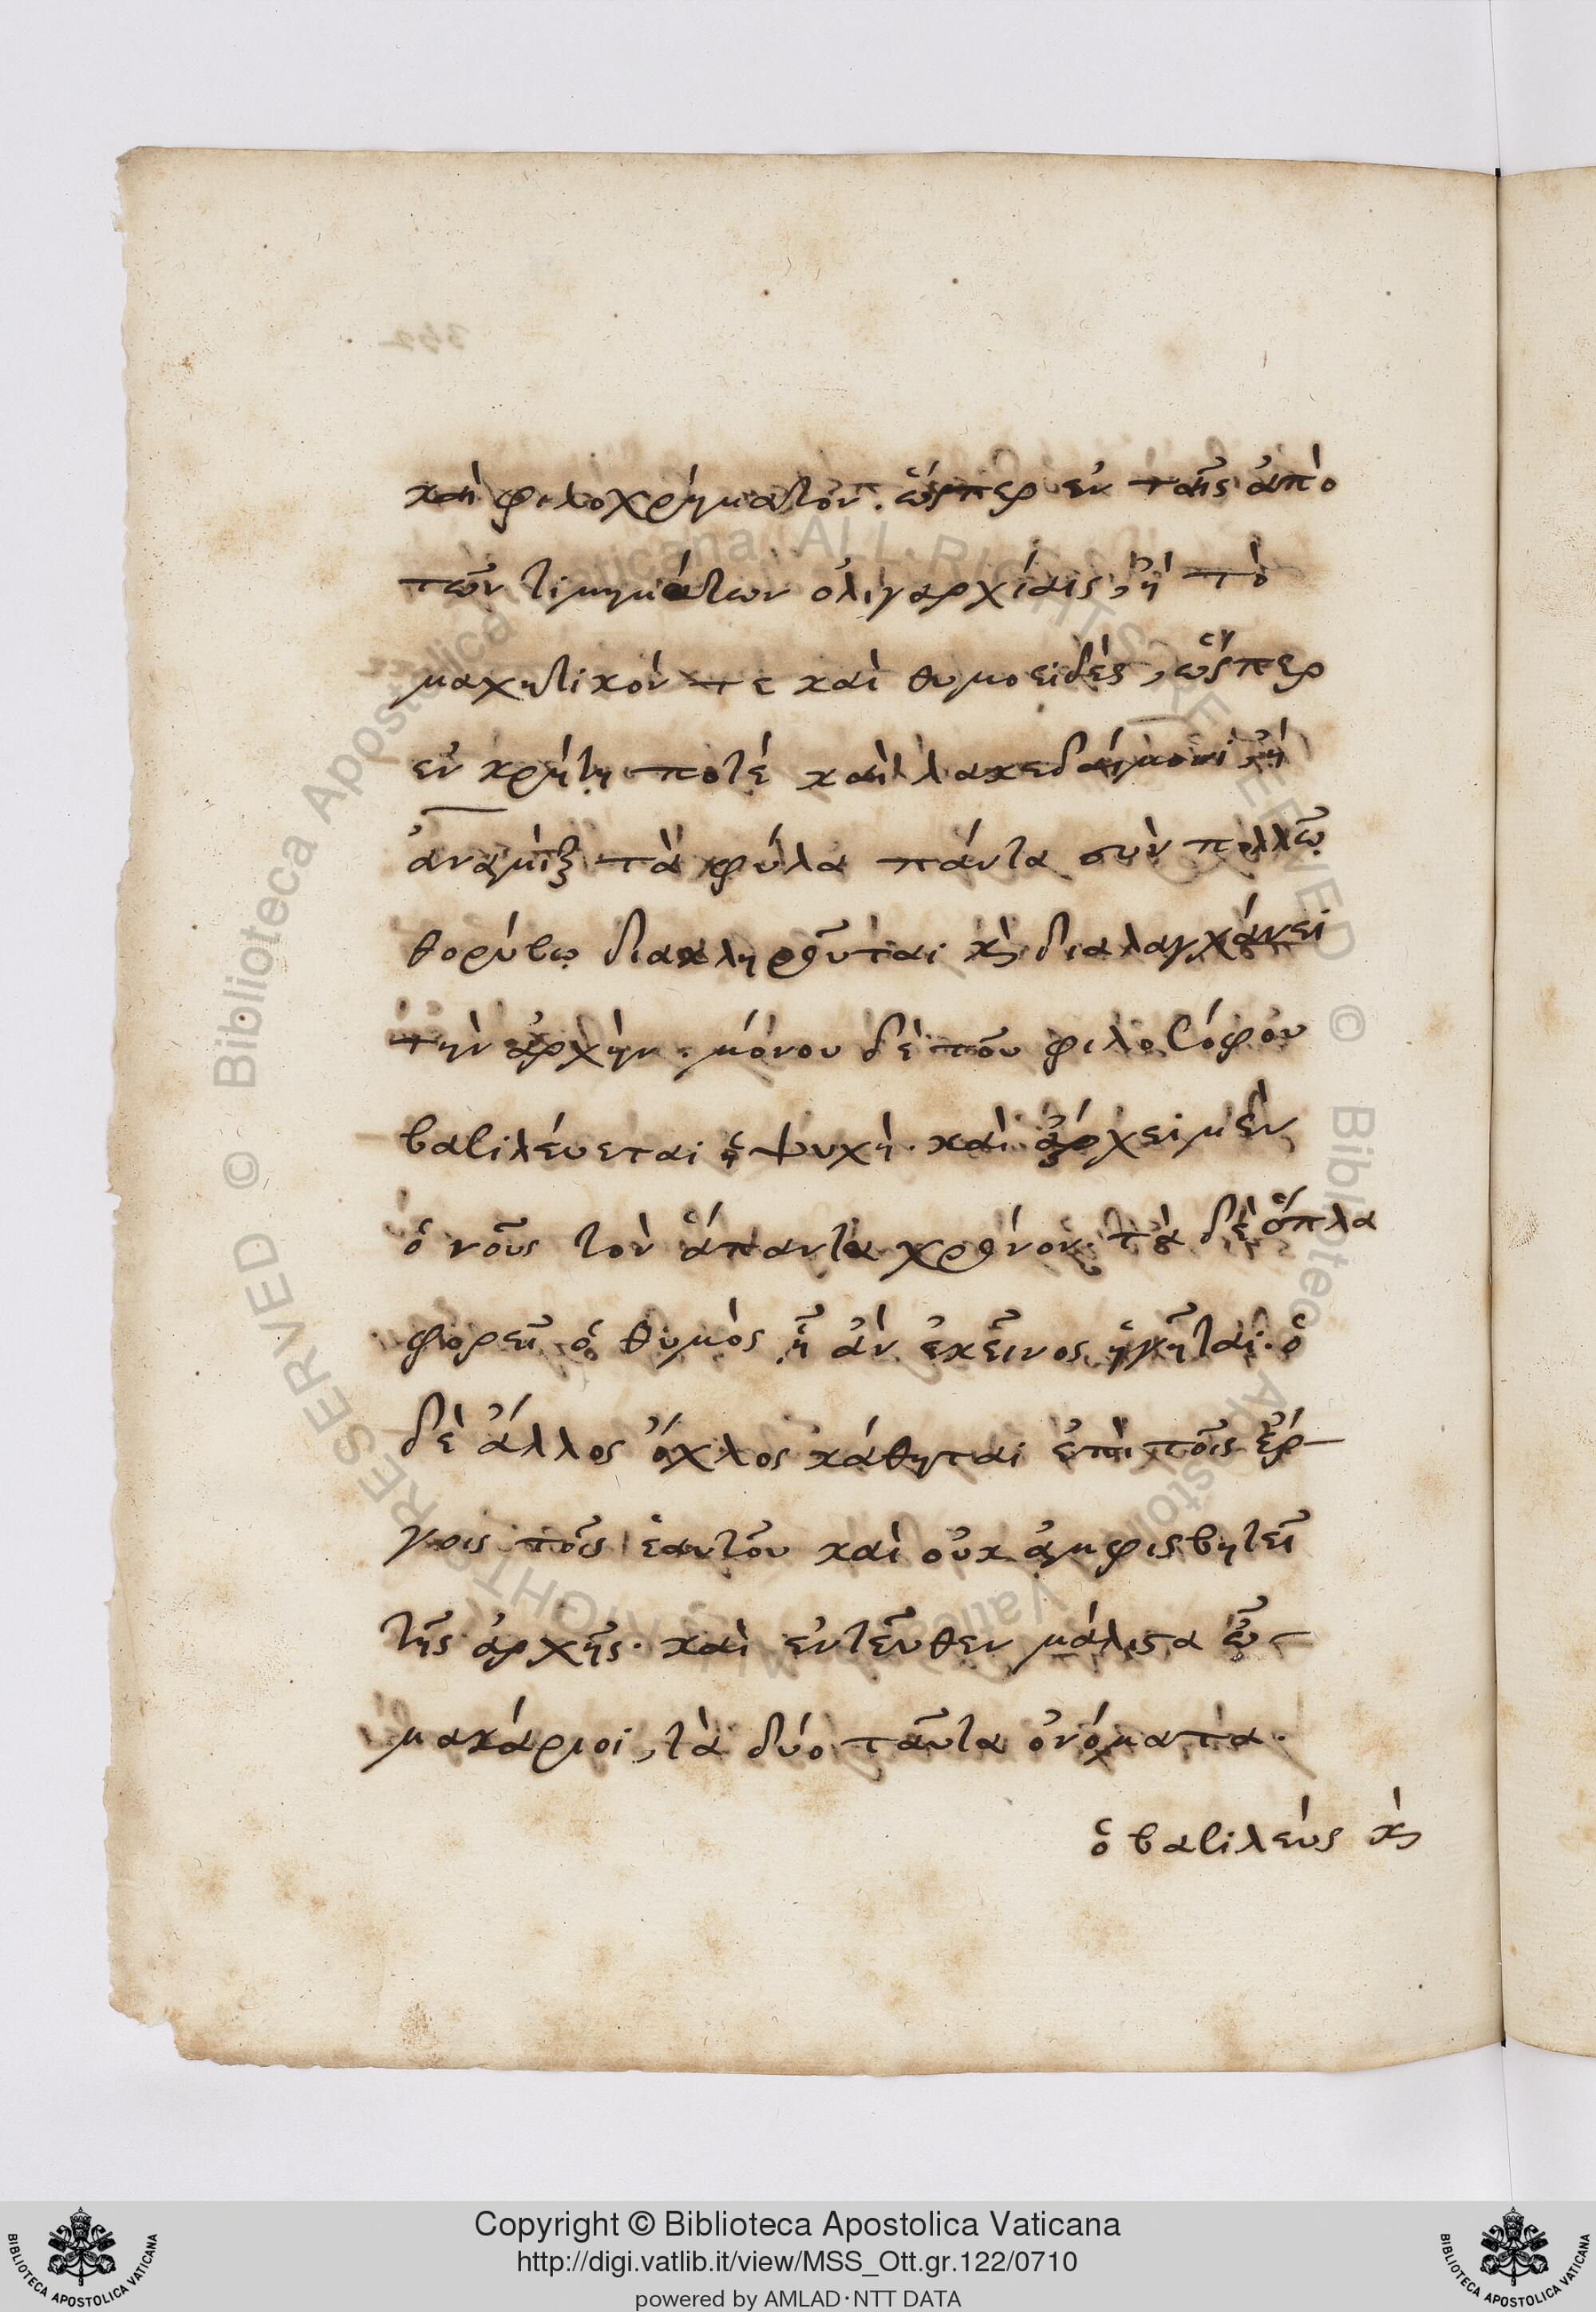 καὶ φιλοχρήματον. ὥσπερ ἐν ταῖς ἀπὸ
τῶν τιμημάτων ὀλιγαρχίαις, ἢ τὸ
μαχητικόν τε καὶ θυμοειδὲς, ὥσπερ
ἐν κρήτῃ ποτέ καὶ λακεδαίμονι, ἢ
ἀναμὶξ τὰ φύλα πάντα σὺν πολλῷ
θορύβῳ διακληροῦται κ̀ διαλαγχάνει
τὴν ἀρχήν. μόνου δὲ τοῦ φιλοσόφου
βασιλέυεται ἡ ψυχὴ. καὶ ἄρχει μὲν
ὁ νοῦς τὸν ἅπαντα χρόνον. τὰ δὲ ὅπλα
φορεῖ ὁ θυμὸς ᾗ ἂν ἐκεῖνος ἡγῆται. ὁ
δὲ ἄλλος ὄχλος κάθηται ἐπὶ τοῖς ἔρ-
γοις τοῖς ἑαυτοῦ καὶ οὐκ ἀμφισβητεῖ
τῆς ἀρχῆς. καὶ ἐντεῦθεν μάλιστα ὦ
μακάριοι, τὰ δύο ταῦτα ὀνόματα.
ὁ βασιλεὺς κ̀
Copyright © Biblioteca Apostolica Vaticana
http://digi.vatlib.it/view/MSS_Ott.gr.122/0710
powered by AMLAD·NTT DATA
BIBLIOTECA APOSTOLICA VATICANA
BIBLIOTECA APOSTOLICA VATICANA
© Biblioteca Apostolica Vaticana. ALL RIGHTS RESERVED
© Biblioteca Apostolica Vaticana. ALL RIGHTS RESERVED